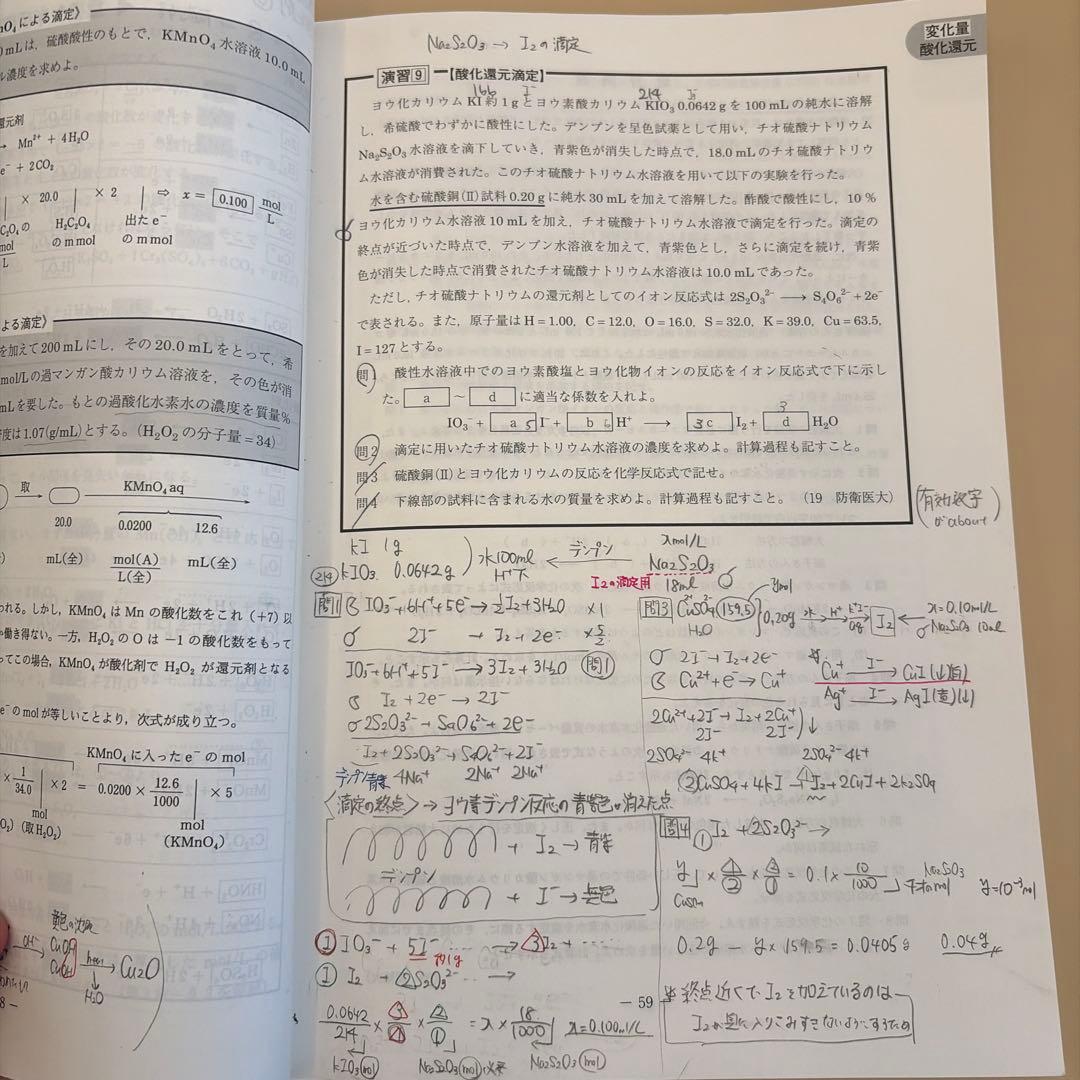 nO₄による滴定》
mLは，硫酸酸性のもとで，KMnO₄水溶液10.0mL
ル濃度を求めよ。
還元剤
→ Mn²⁺ + 4H₂O
e⁻ + 2CO₂
× 20.0 × 2 ⇨ x = 0.100 mol/L
H₂C₂O₄の mmol
出たe⁻の mmol
よる滴定》
を加えて200mLにし，その20.0mLをとって，希
mol/Lの過マンガン酸カリウム溶液を，その色が消
mLを要した。もとの過酸化水素水の濃度を質量%
度は1.07(g/mL)とする。(H₂O₂の分子量=34)
取 KMnO₄ aq
20.0 0.0200 12.6
mL(全) mol(A)/L(全) mL(全)
われる。しかし，KMnO₄はMnの酸化数をこれ(+7)以
か働き得ない。一方，H₂O₂のOは−1の酸化数をもって
ってこの場合，KMnO₄が酸化剤でH₂O₂が還元剤となる
e⁻のmolが等しいことより，次式が成り立つ。
KMnO₄に入ったe⁻のmol
× 1/34.0 × 2 = 0.0200 × 12.6/1000 × 5
mol mol
(取H₂O₂) (KMnO₄)
OH⁻ CuOH CuOH → Cu₂O
H₂O
変化量
酸化還元
Na₂S₂O₃ → I₂の滴定
演習9 【酸化還元滴定】
166 I⁻ 214
ヨウ化カリウムKI約1gとヨウ素酸カリウムKIO₃ 0.0642gを100mLの純水に溶解
し，希硫酸でわずかに酸性にした。デンプンを呈色試薬として用い，チオ硫酸ナトリウム
Na₂S₂O₃水溶液を滴下していき，青紫色が消失した時点で，18.0mLのチオ硫酸ナトリウ
ム水溶液が消費された。このチオ硫酸ナトリウム水溶液を用いて以下の実験を行った。
水を含む硫酸銅(Ⅱ)試料0.20gに純水30mLを加えて溶解した。酢酸で酸性にし，10%
ヨウ化カリウム水溶液10mLを加え，チオ硫酸ナトリウム水溶液で滴定を行った。滴定の
終点が近づいた時点で，デンプン水溶液を加えて，青紫色とし，さらに滴定を続け，青紫
色が消失した時点で消費されたチオ硫酸ナトリウム水溶液は10.0mLであった。
ただし，チオ硫酸ナトリウムの還元剤としてのイオン反応式は2S₂O₃²⁻ ⟶ S₄O₆²⁻+2e⁻
で表される。また，原子量はH=1.00，C=12.0，O=16.0，S=32.0，K=39.0，Cu=63.5，
I=127とする。
問1 酸性水溶液中でのヨウ素酸塩とヨウ化物イオンの反応をイオン反応式で下に示し
た。 a ～ d に適当な係数を入れよ。
IO₃⁻ + a 5 I⁻ + b 6 H⁺ ⟶ 3 c I₂ + d 3 H₂O
問2 滴定に用いたチオ硫酸ナトリウム水溶液の濃度を求めよ。計算過程も記すこと。
問3 硫酸銅(Ⅱ)とヨウ化カリウムの反応を化学反応式で記せ。
問4 下線部の試料に含まれる水の質量を求めよ。計算過程も記すこと。 (19 防衛医大)
(有効数字
about)
KI 1g
214 KIO₃ 0.0642g
水100ml
H⁺下
デンプン
xmol/L
Na₂S₂O₃
I₂の滴定用 18ml
問1 IO₃⁻+6H⁺+5e⁻→½I₂+3H₂O ×1
2I⁻ → I₂+2e⁻ ×5/2
IO₃⁻+6H⁺+5I⁻→3I₂+3H₂O 問1
I₂+2e⁻→2I⁻
2S₂O₃²⁻→S₄O₆²⁻+2e⁻
I₂+2S₂O₃²⁻→S₄O₆²⁻+2I⁻
デンプン青紫 4Na⁺ 2Na⁺ 2Na⁺
〈滴定の終点〉→ヨウ素デンプン反応の青紫色が消えた点
+ I₂→青紫
デンプン
+ I⁻→無色
① IO₃⁻ + 5I⁻ ⋯ → 3I₂ + ⋯
約1g
① I₂ + 2S₂O₃²⁻ ⋯ →
0.0642/214 × 3/1 × 2/1 = x × 18/1000 x=0.100mol/L
KIO₃ mol Na₂S₂O₃ mol 必要 Na₂S₂O₃ mol
ymol
問3 CuSO₄ (159.5) 0.20g 水 → H⁺ → K⁺I⁻ aq → I₂ ← x=0.10mol/L
H₂O Na₂S₂O₃ 10ml
2I⁻→I₂+2e⁻
Cu²⁺+e⁻→Cu⁺
Cu⁺ I⁻→ CuI(↓白)
Ag⁺ I⁻→ AgI(黄)(↓)
2Cu²⁺+2I⁻→I₂+2Cu⁺
2I⁻ 2I⁻
2SO₄²⁻ 4K⁺ 2SO₄²⁻ 4K⁺
②CuSO₄+4KI→I₂+2CuI+2K₂SO₄
問4 ①I₂+2S₂O₃²⁻→
y × 1/2 × 2/1 = 0.1 × 10/1000 Na₂S₂O₃ y=10⁻³mol
0.2g − y×159.5 = 0.0405g 0.04g
※終点近くで I₂を加えているのは
− 59 −